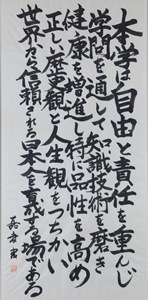 本学は自由と責任を重んじ
学問を通して知識技術を磨き
健康を増進し特に品性を高め
正しい歴史観と人生観をつちかい
世界から信頼される日本人を育成する場である